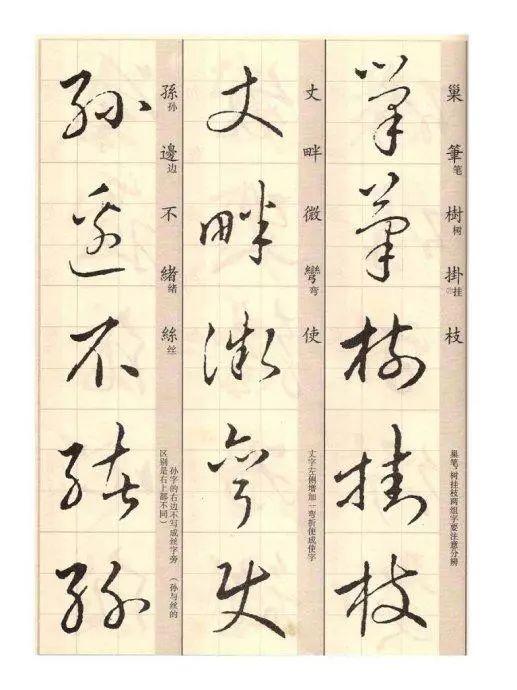 巢 筆笔 樹树 掛挂 枝
巢、笔，树挂枝两组字要注意分辨
巢
筆
樹
掛
枝
丈 畔 微 彎弯 使
丈字左侧增加一弯折便成使字
丈
畔
微
彎
使
孫孙 邊边 不 緒绪 絲丝
孙字的右边不写成丝字旁 （孙与丝的
区别是右上部不同）
孫
邊
不
緒
絲